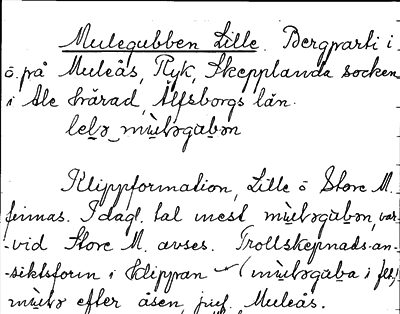 Mulegubben Lille. Bergparti i
ö. på Muleås, Ryk, Skepplanda socken
i Ale härad, Älfsborgs län.
lɛlə mùləgubən
Klippformation, Lille o Store M.
finnas. I dagl. tal mest mùləgubən, var-
-vid Store M. avses. Trollskepnads-an-
-siktsform i klippan – (mùləgubа i fler)
mùlə efter åsen, jmf. Muleås.